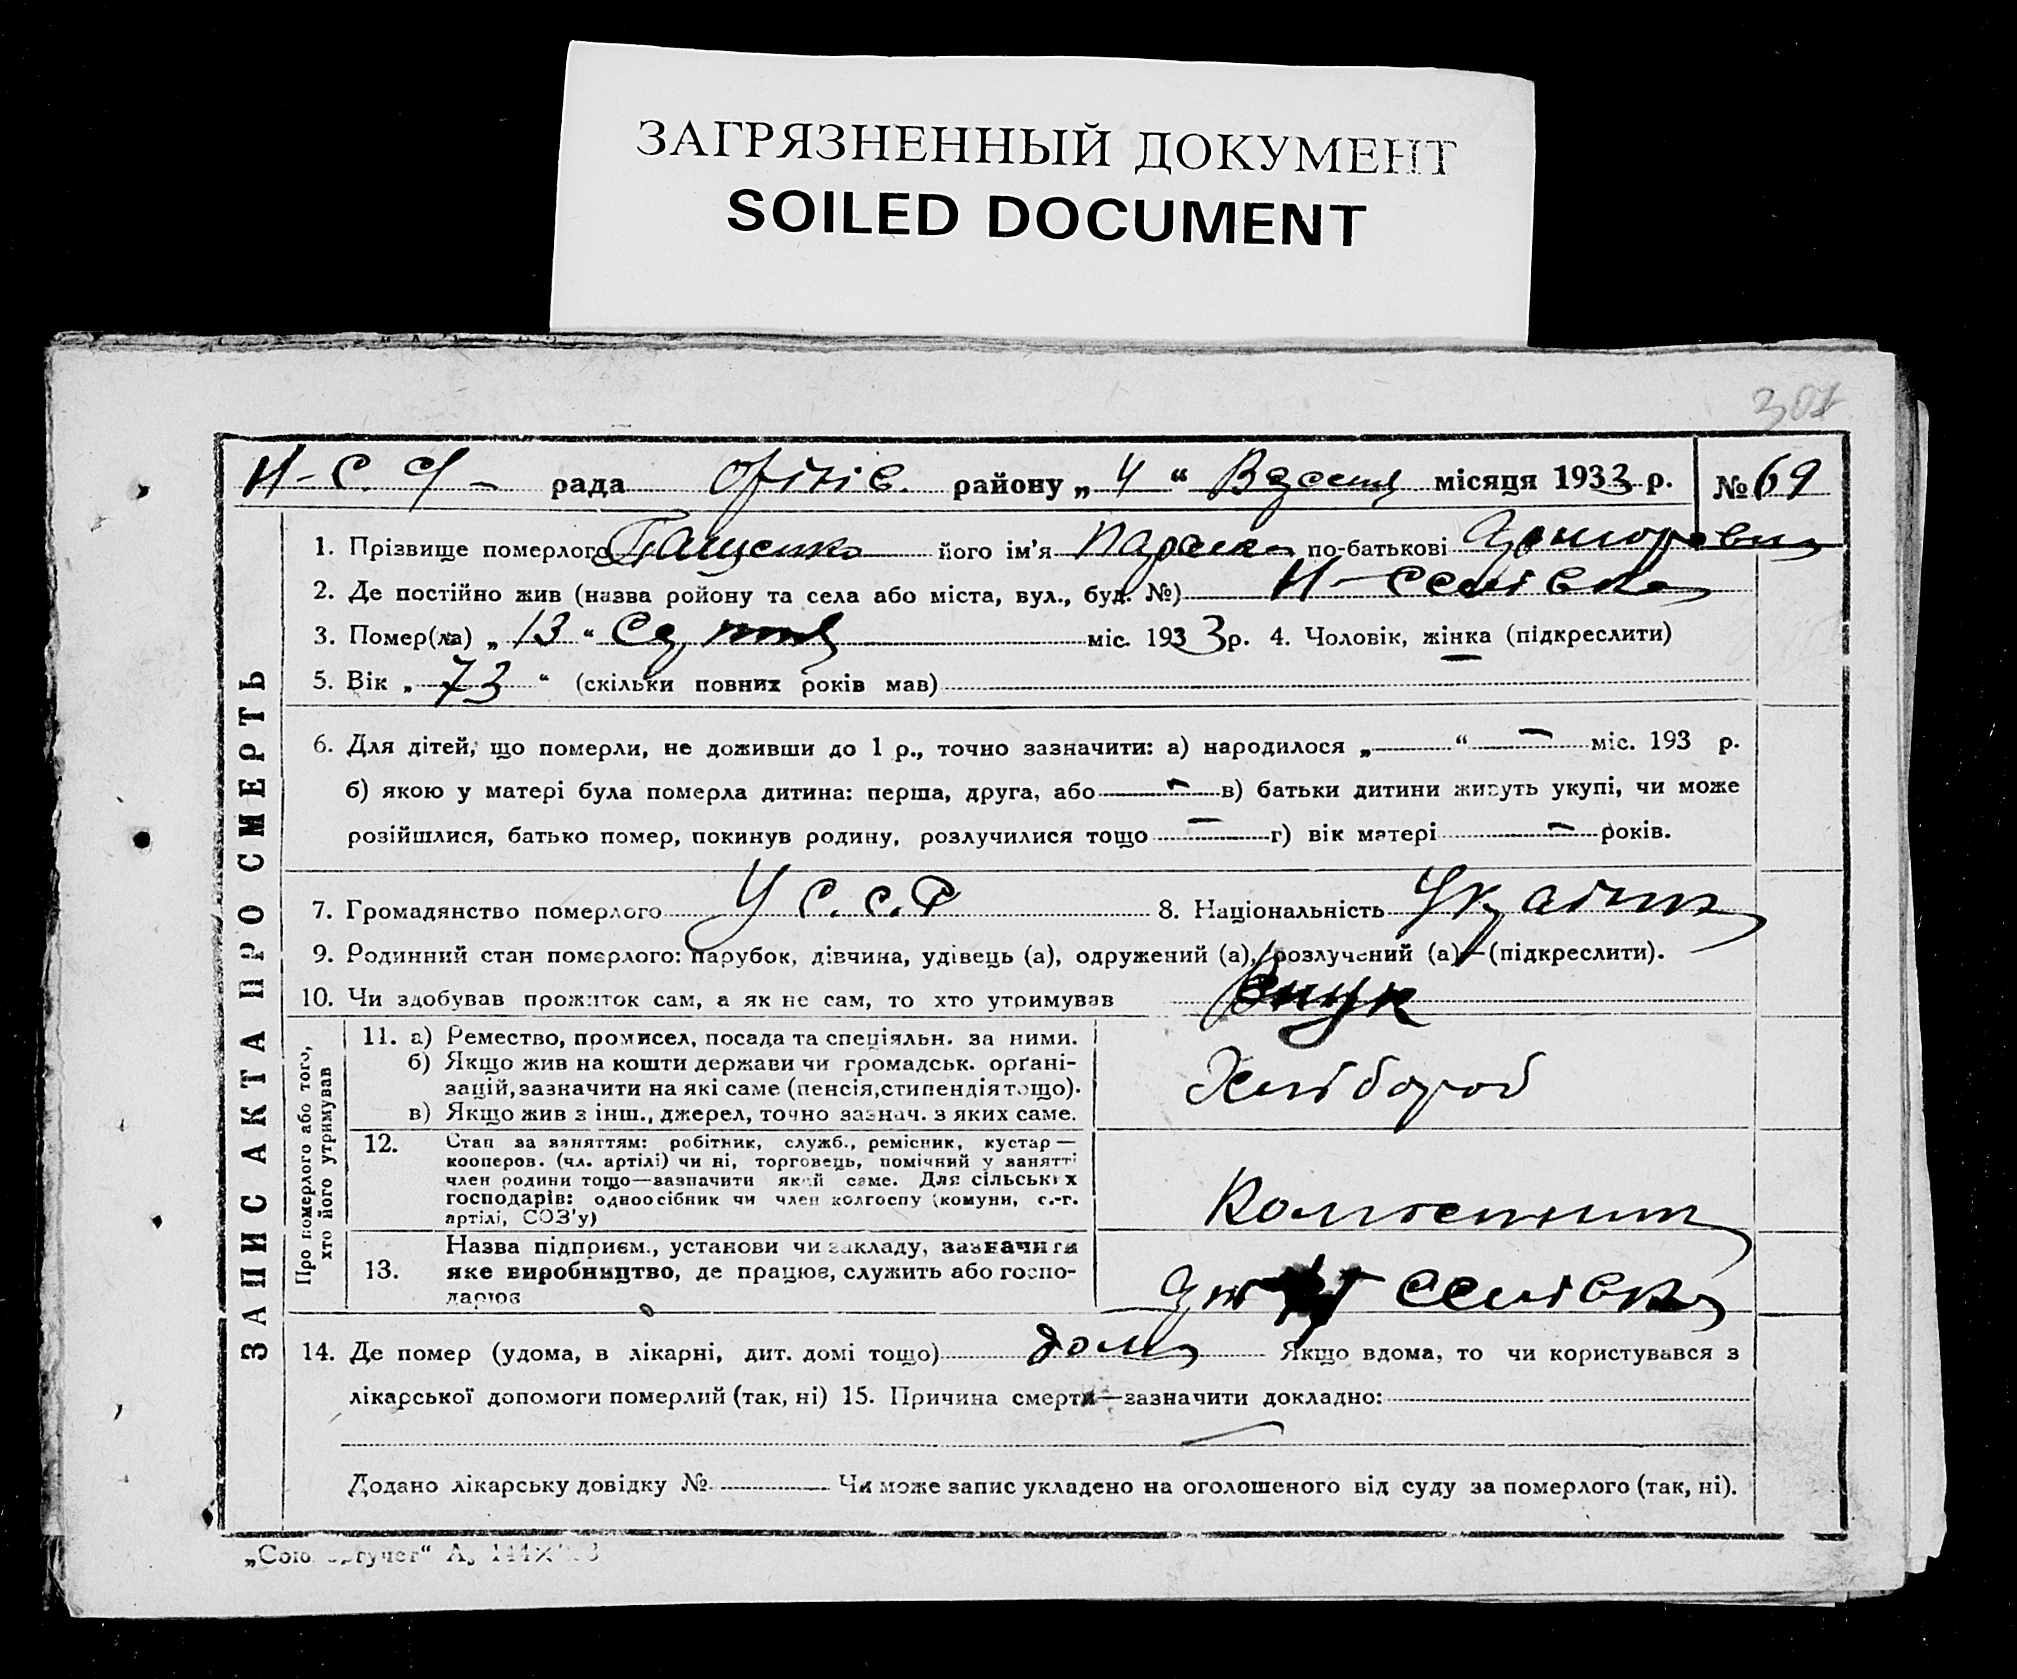 ЗАГРЯЗНЕННЫЙ ДОКУМЕНТ
SOILED DOCUMENT
307
рада район у „ 4 “ місяця 1933 р. № 69
ЗАПИС АКТА ПРО СМЕРТЬ
1. Прізвище померлого Пащенко його ім'я Параска по-батькові
2. Де постійно жив (назва ройону та села або міста, вул., буд. №) Н-Селівка
3. Помер(ла) „ 13 “ Серпня міс. 1933 р. 4. Чоловік, жінка (підкреслити)
5. Вік „ 73 “ (скільки повних років мав)
6. Для дітей, що померли, не доживши до 1 р., точно зазначити: а) народилося „ — “ — міс. 193 р.
б) якою у матері була померла дитина: перша, друга, або — в) батьки дитини живуть укупі, чи може
розійшлися, батько помер, покинув родину, розлучилися тощо — г) вік матері — років.
7. Громадянство померлого У С.С.Р 8. Національність Україн
9. Родинний стан померлого: парубок, дівчина, удівець (а), одружений (а), розлучений (а)—(підкреслити).
10. Чи здобував прожиток сам, а як не сам, то хто утримував Внук
Про померлого або того, хто його утримував
11. а) Ремество, промисел, посада та спеціяльн. за ними.
б) Якщо жив на кошти держави чи громадськ. орґані-
зацій, зазначити на які саме (пенсія, стипендія тощо).
в) Якщо жив з інш., джерел, точно зазнач. з яких саме.
Хлібороб
12. Стан за заняттям: робітник, служб., ремісник, кустар —
кооперов. (чл. артілі) чи ні, торговець, помічний у занятті
член родини тощо—зазначити який саме. Для сільських
господарів: одноосібник чи член колгоспу (комуни, с.-г.
артілі, СОЗ'у)
13. Назва підприєм., установи чи закладу, зазначити
яке виробництво, де працює, служить або госпо-
дарює
селівка
14. Де помер (удома, в лікарні, дит. домі тощо) дома Якщо вдома, то чи користувався з
лікарської допомоги померлий (так, ні) 15. Причина смерти—зазначити докладно:
Додано лікарську довідку № Чи може запис укладено на оголошеного від суду за померлого (так, ні).